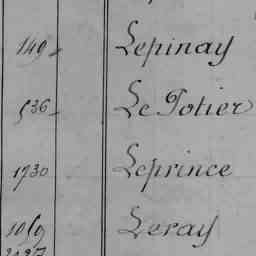 149 Lepinay
536 Le Potier
1730 Leprince
Leray